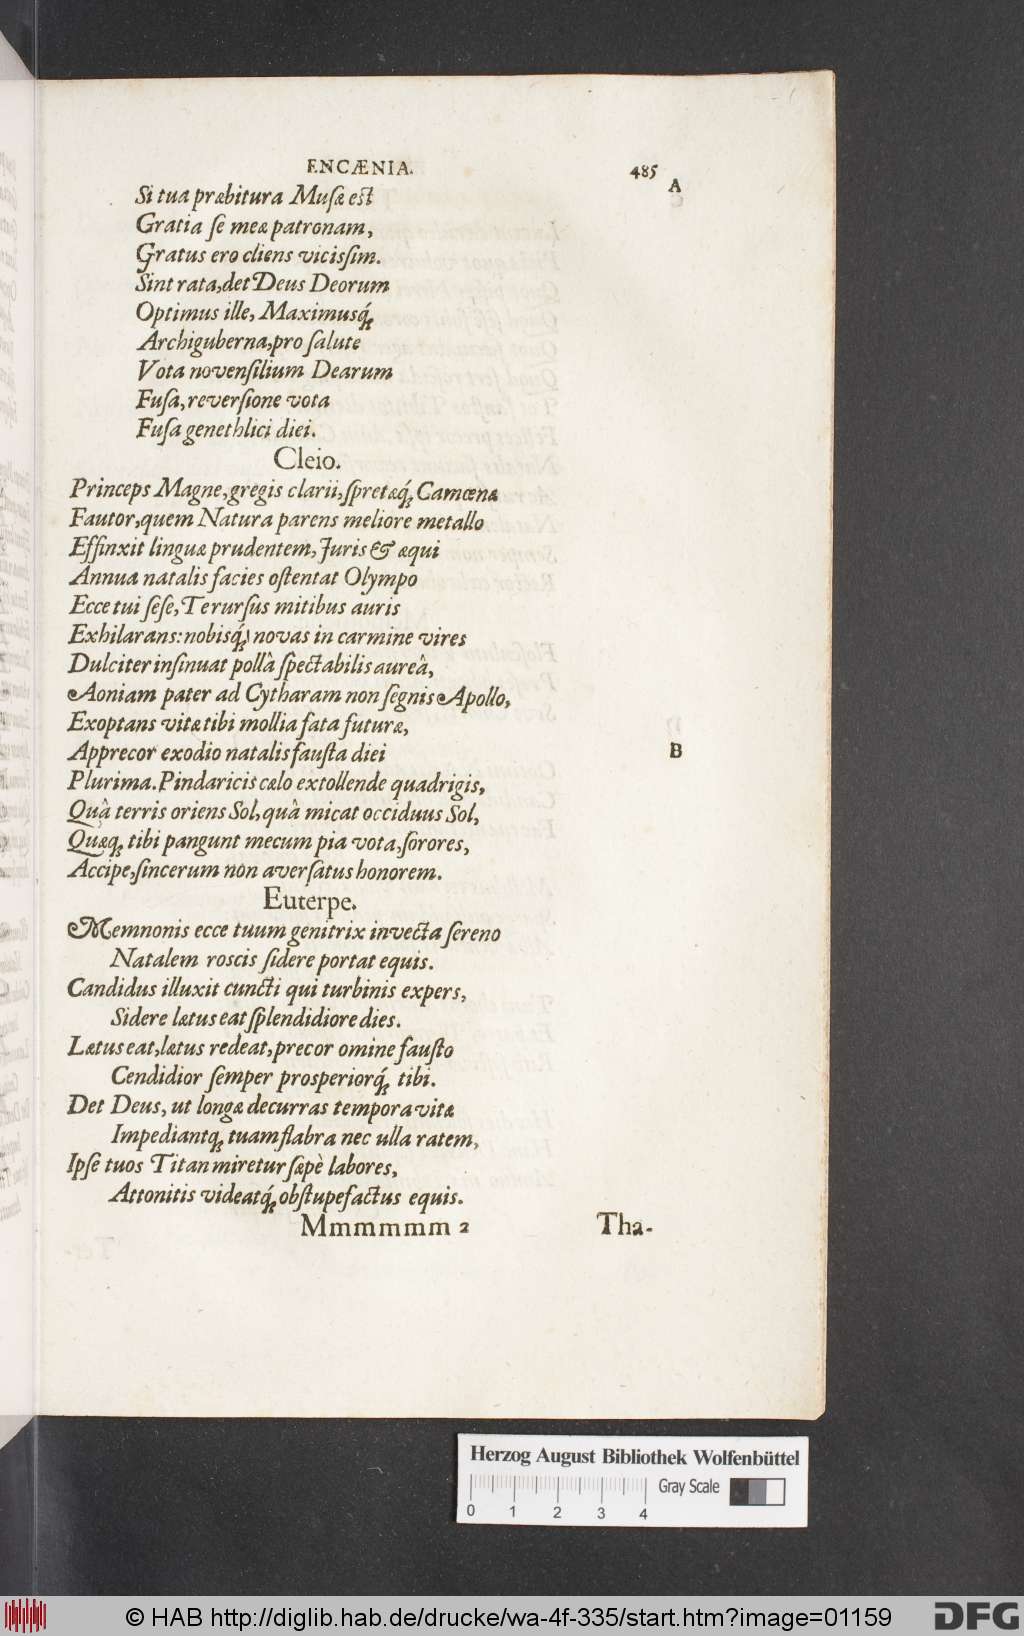 ENCÆNIA. 485
A
Si tua præbitura Musæ est
Gratia se meæ patronam,
Gratus ero cliens vicissim.
Sint rata, det Deus Deorum
Optimus ille, Maximusq́;
Archiguberna, pro salute
Vota novensilium Dearum
Fusa, reversione vota
Fusa genethlici diei.
Cleio.
Princeps Magne, gregis clarii, spretæq́; Camœnæ
Fautor, quem Natura parens meliore metallo
Effinxit linguæ prudentem, Juris & æqui
Annua natalis facies ostentat Olympo
Ecce tui sese, Te rursus mitibus auris
Exhilarans: nobisq́; novas in carmine vires
Dulciter insinuat pollâ spectabilis aureâ,
Aoniam pater ad Cytharam non segnis Apollo,
Exoptans vitæ tibi mollia fata futuræ,
Apprecor exodio natalis fausta diei
B
Plurima. Pindaricis cælo extollende quadrigis,
Quà terris oriens Sol, quâ micat occiduus Sol,
Quæq; tibi pangunt mecum pia vota, sorores,
Accipe, sincerum non aversatus honorem.
Euterpe.
Memnonis ecce tuum genitrix invecta sereno
Natalem roscis sidere portat equis.
Candidus illuxit cuncti qui turbinis expers,
Sidere lætus eat splendidiore dies.
Lætus eat, lætus redeat, precor omine fausto
Cendidior semper prosperiorq́; tibi.
Det Deus, ut longæ decurras tempora vitæ
Impediantq; tuam flabra nec ulla ratem,
Ipse tuos Titan miretur sæpè labores,
Attonitis videatq́; obstupefactus equis.
Mmmmmm 2 Tha-
Herzog August Bibliothek Wolfenbüttel
Gray Scale
0 1 2 3 4
© HAB http://diglib.hab.de/drucke/wa-4f-335/start.htm?image=01159
DFG